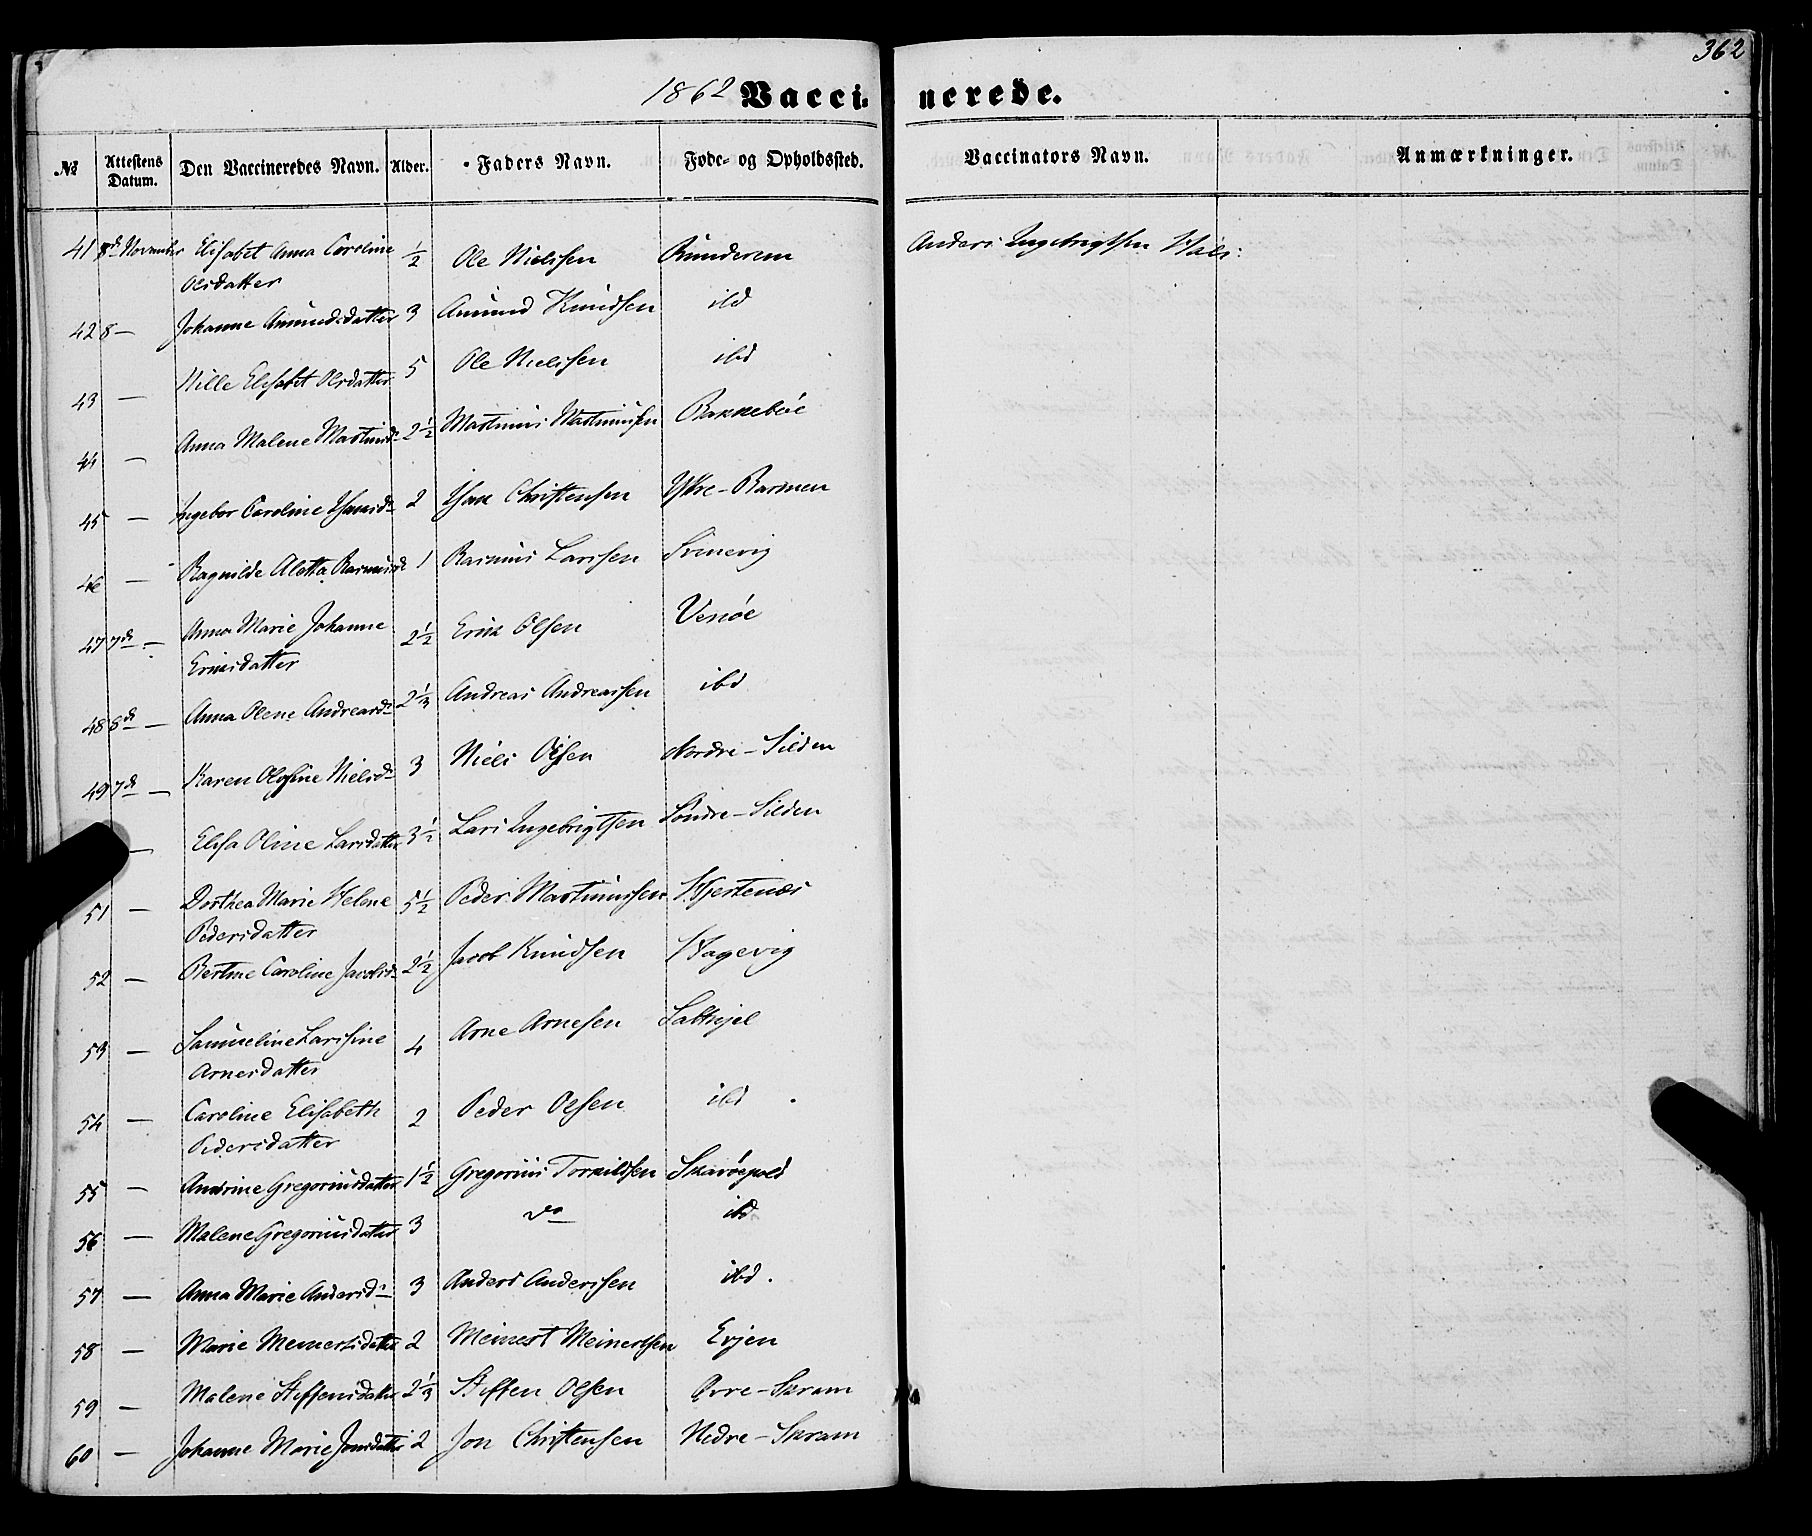 362
1862 Vaccinerede.
№ Attestens Datum. Den Vaccineredes Navn. Alder. Faders Navn. Føde- og Opholdssted. Vaccinators Navn. Anmærkninger.
41 8d November Elisabet Anna Caroline ½ Ole Nielssen Runderem Anders Ingebrigtsen
Olsdatter
42 8 — Johanne Amundsdatter 3 Amund Knudsen ibd
43 — Nille Elisabet Olsdatter 5 Ole Nielssen ibd
44 — Anna Malene Martinusd: 2½ Martinus Martinussen Bakkebøe
45 — Ingebor Caroline Isansd: 2 Isak Christensen Ytre-Barmen
46 — Ragnilde Aletta Rasmusd 1 Rasmus Larssen
47 7d — Anna Marie Johanne 2½ Erik Olsen Venøe
Eriksdatter
48 8d — Anna Olene Andreasd: 2⅓ Andreas Andreassen ibd
49 7d — Karen Olufine Nielsd: 3 Niels Olsen Nordre-Silden
— Elisa Oline Larsdatter 3½ Lars Ingebrigtsen Søndre-Silden
51 — Dorthea Marie Helene 5½ Peder Martinussen Hjertenæs
Pedersdatter
52 — Bertine Caroline Jacobsd: 2½ Jacob Knudsen Hagevig
53 — Samueline Larssine 4 Arne Arnesen
Arnesdatter
54 — Caroline Elisabeth 2 Peder Olsen ibd
Pedersdatter
55 — Andrine Gregoriusdatter 1½ Gregorius Torkildsen
56 — Malene Gregoriusdatter 3 do ibd
57 — Anna Marie Andersd: 3 Anders Anderssen ibd.
58 — Marie Meinertsdatter 2 Meinert Meinertsen Evjen
59 — Malene Steffensdatter 2⅓ Steffen Olsen Øvre-Skram
60 — Johanne Marie Jonsdatter 2 Jon Christensen Nedre-Skram